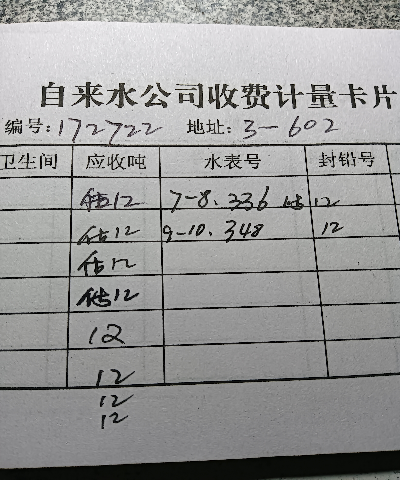 自来水公司收费计量卡片
编号:172722 地址:3-602
卫生间 应收吨 水表号 封铅号
估12 7-8.336 估12
估12 9-10.348 12
估12
估12
12
12
12
12